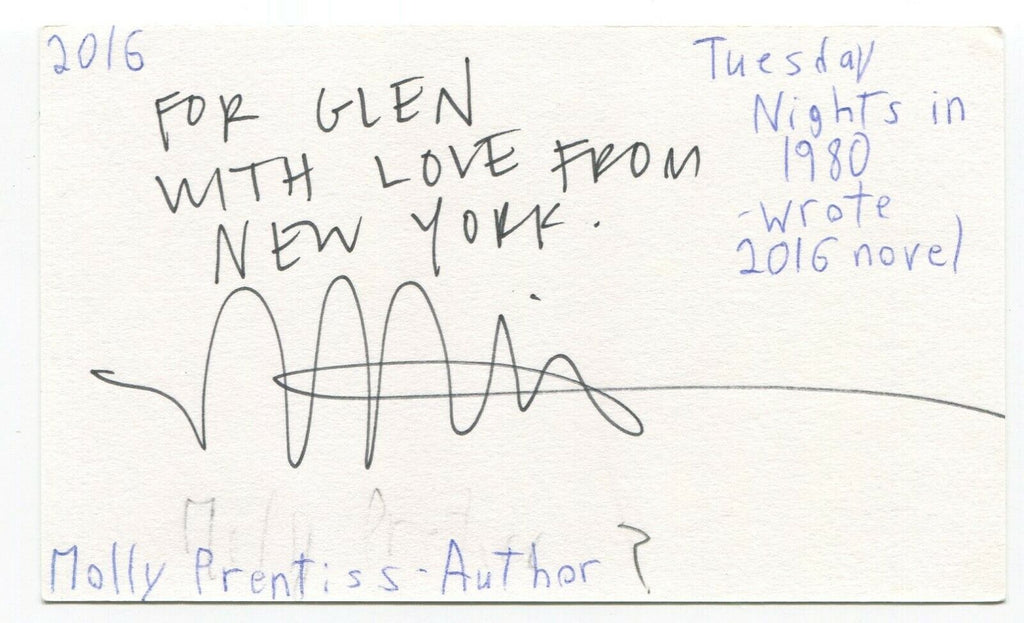 2016
FOR GLEN
WITH LOVE FROM
NEW YORK.
Tuesday
Nights in
1980
-wrote
2016 novel
Molly Prentiss-Author ?